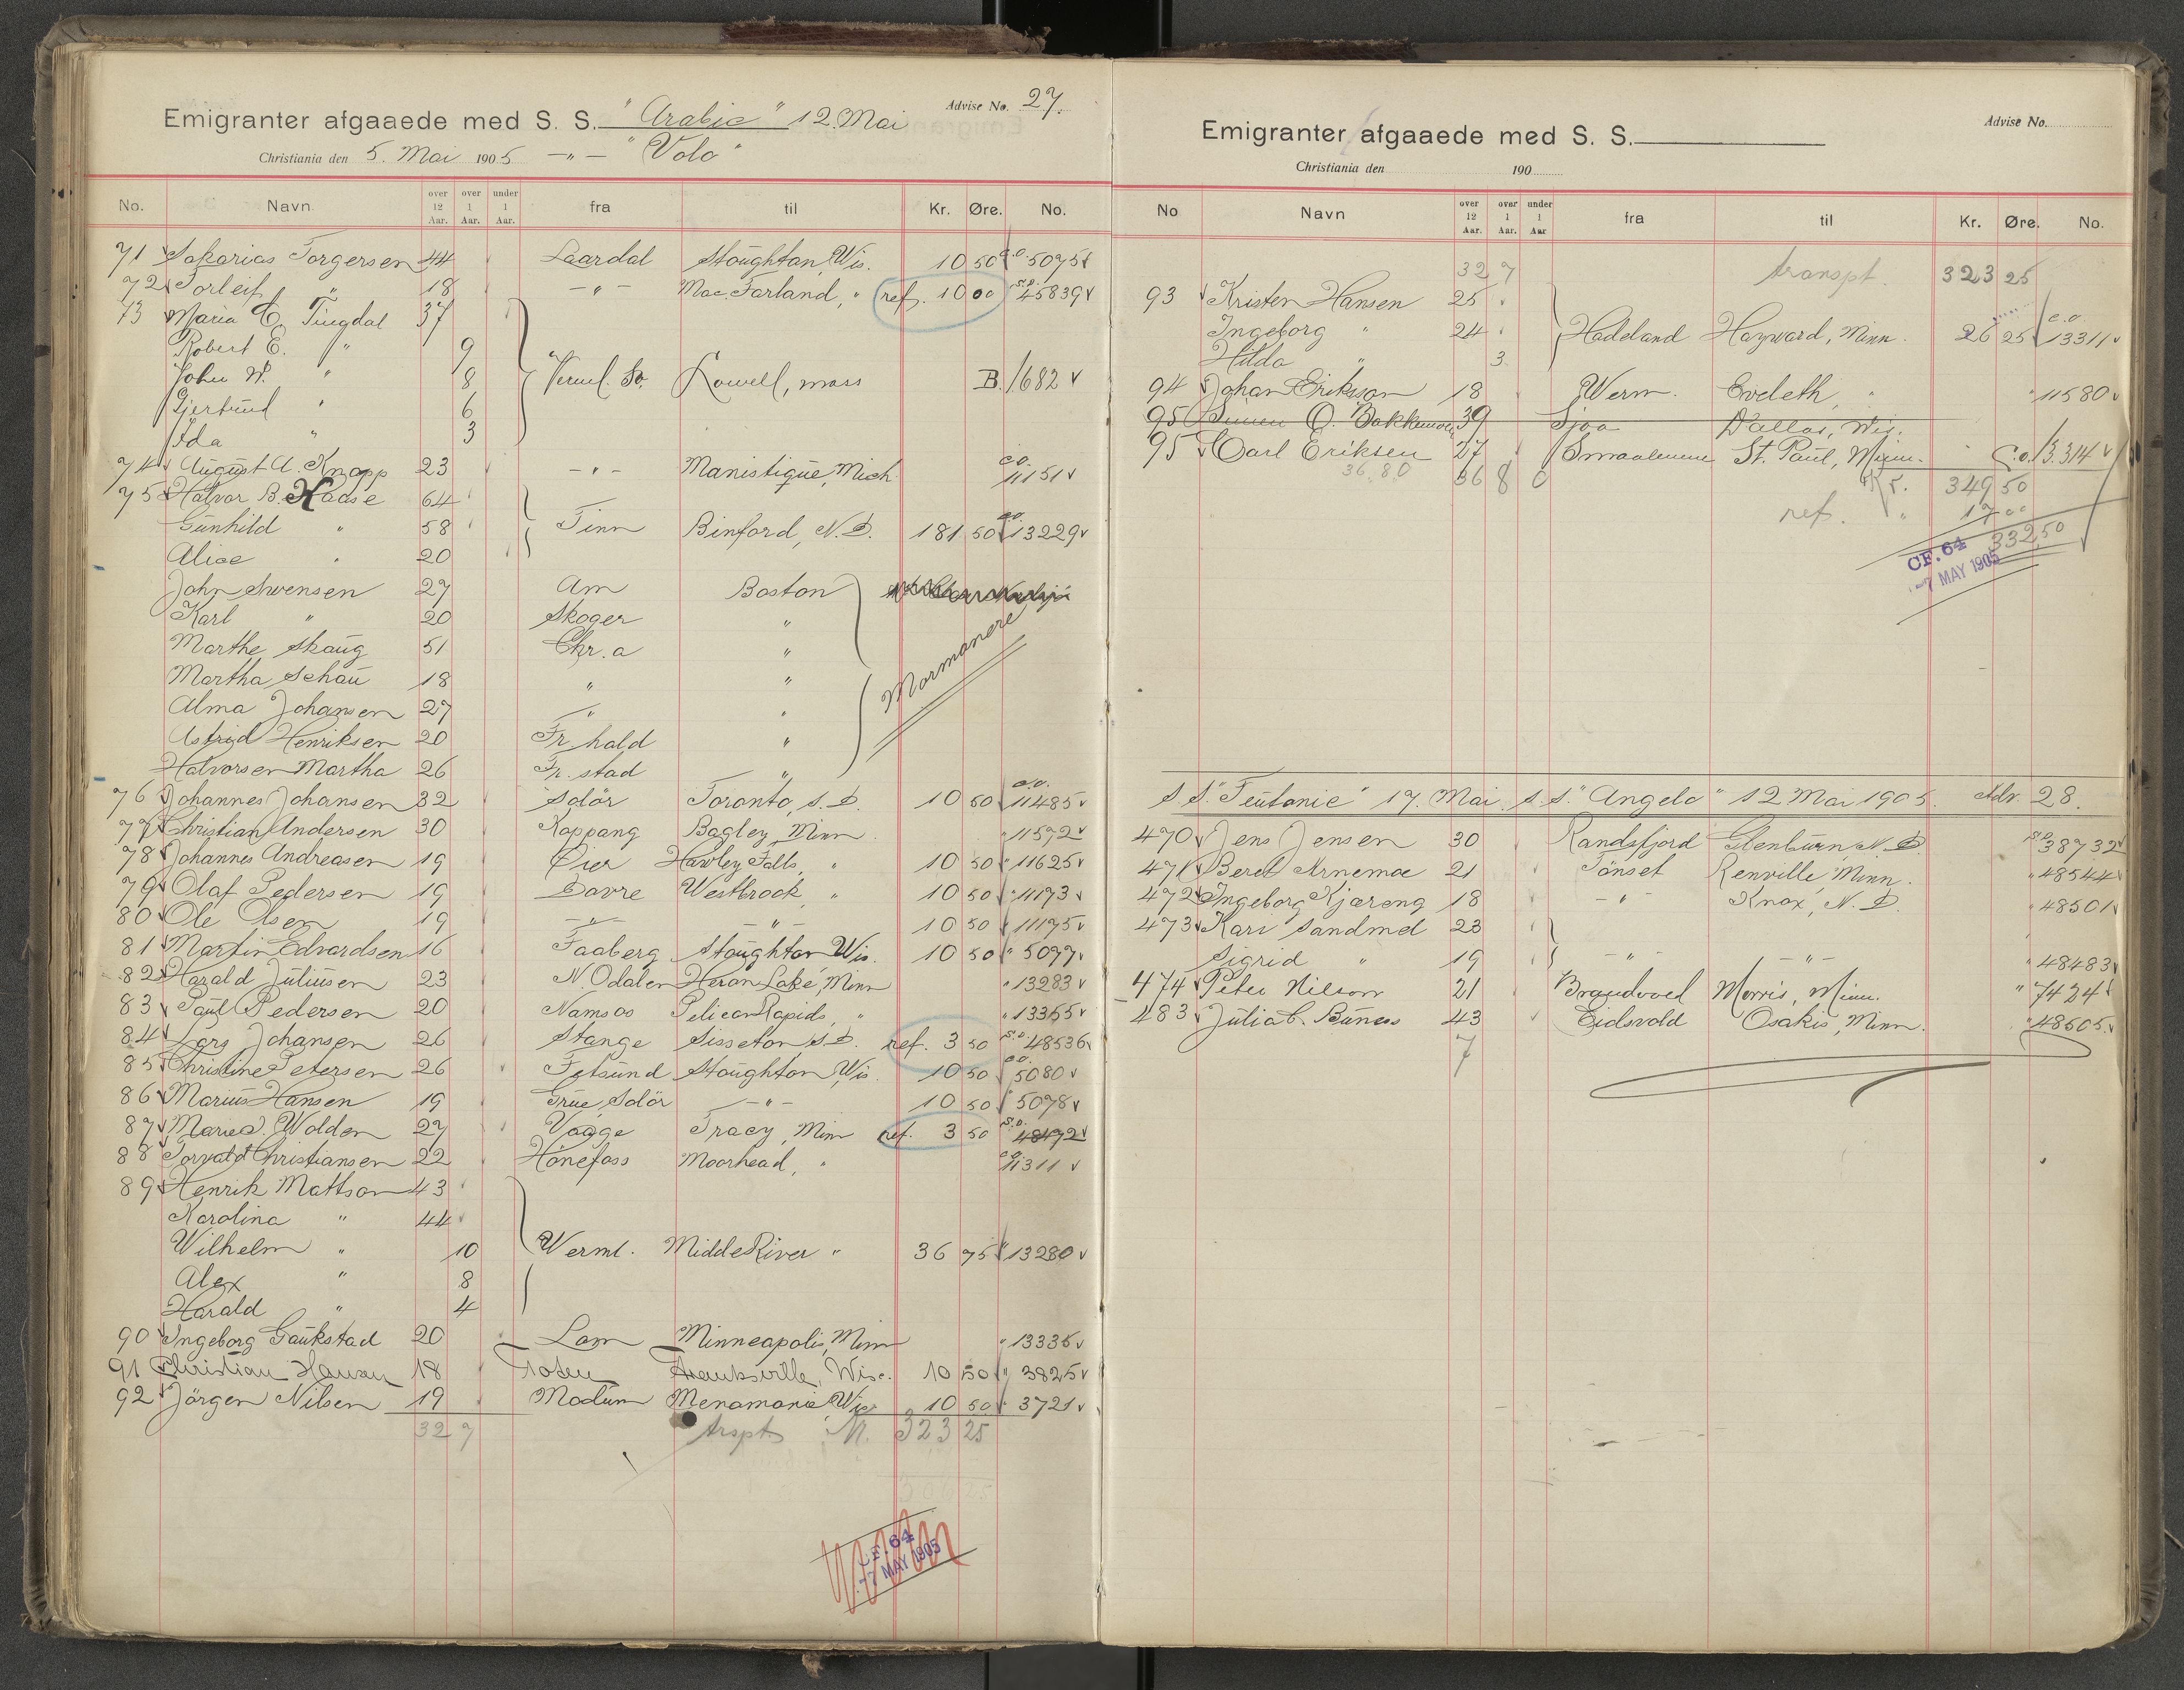 Advise No. 27.
Emigranter afgaaede med S. S. "Arabic" 12. Mai
Christiania den 5. Mai 1905 —"— "Volo"
No. Navn over 12 Aar. over 1 Aar. under 1 Aar. fra til Kr. Øre. No.
71 Sakarias Torgersen 44 Laardal Stoughton, Wis. 10 50 c.o. 5075
72 Torleif " 18 —"— Mac. Farland, " ref. 10 00 s.o. 45839
73 Maria C. Tingdal 37
Robert E. " 9
John W. " 8 Lowell, mass B. 1682
Gjertrud " 6
Ida " 3
74 August A. Knapp 23 —"— Manistique, Mich. c.o. 11151
75 Halvor B. Haase 64
Gunhild " 58 Tinn Binford, N. D. 181 50 c.o. 13229
Alice " 20
John Swensen 27 Am Boston
Karl " 20 Skoger "
Marthe Skaug 51 Chr.a "
Mormonere
Martha Schau 18 " "
Alma Johansen 27 " "
Astrid Henriksen 20 Fr.hald "
Halvorsen Martha 26 Fr.stad "
76 Johannes Johansen 32 Solör Toronto, S. D. 10 50 c.o. 11485
77 Christian Andersen 30 Koppang Bagley, Minn. " 11572
78 Johannes Andreasen 19 Öier Hawley Falls, " 10 50 " 11625
79 Olaf Pedersen 19 Dovre Westbrook, " 10 50 " 11173
80 Ole Olsen 19 —"— —"— 10 50 " 11175
81 Martin Edvardsen 16 Faaberg Stoughton Wis. 10 50 " 5077
82 Harald Juliusen 23 N. Odalen Heron Lake, Minn " 13283
83 Paul Pedersen 20 Namsos Pelican Rapids, " " 13355
84 Lars Johansen 26 Stange Sisseton, S. D. ref. 3 50 s.o. 48536
85 Christine Petersen 26 Fetsund Stoughton, Wis. 10 50 c.o. 5080
86 Marius Hansen 19 Grue, Solör —"— 10 50 " 5078
87 Wolden 27 Vaage Tracy, Minn ref. 3 50 s.o. 48472
88 Torvald Christiansen 22 Hönefoss Moorhead, " c.o. 11311
89 Henrik Mattson 43
Karolina " 44
Wilhelm " 10 Werml. Midde River " 36 75 " 13280
Alex " 8
Harald " 4
90 Ingeborg Gaukstad 20 Lom Minneapolis, Minn " 13335
91 Christian Hansen 18 Hanksville, Wis. 10 50 " 3825
92 Jörgen Nilsen 19 Modum Menomonie, Wis 10 50 " 3721
32 7 trspt. 323 25
CF. 64
7 MAY 1905
Advise No.
Emigranter afgaaede med S. S.
Christiania den 190
No Navn over 12 Aar. over 1 Aar. under 1 Aar fra til Kr. Øre. No.
32 7 transpt. 323 25
93 Kristen Hansen 25
Ingeborg " 24 Hadeland Hayward, Minn. 26 25 c.o. 13311
Hilda " 3
94 Johan Eriksson 18 Werm. Eveleth, " " 11580
95 Simen O. Bakkemoen 39 Sjoa Dallas, Wis.
95 Carl Eriksen 27 Smaalenene St. Paul, Minn. c.o. 13314
36.80 36 8 0 Kr. 349 50
ref. " 17 00
332,50
CF. 64
7 MAY 1905
S.S. "Teutonic" 17. Mai S.S. "Angelo" 12 Mai 1905. Adv. 28.
470 Jens Jensen 30 Randsfjord Glenburn, N. D. s.o. 38732
471 Beret Arnemoe 21 Tönset Renville, Minn. " 48544
472 Ingeborg Kjæreng 18 —"— Knox, N. D. " 48501
473 Kari Sandmel 23
Sigrid " 19 —"— —"— " 48483
474 Peter Nilsson 21 Brandvoed Morris, Minn. " 7424
483 Julia C. Buness 43 Eidsvold Osakis, Minn. " 48505
7